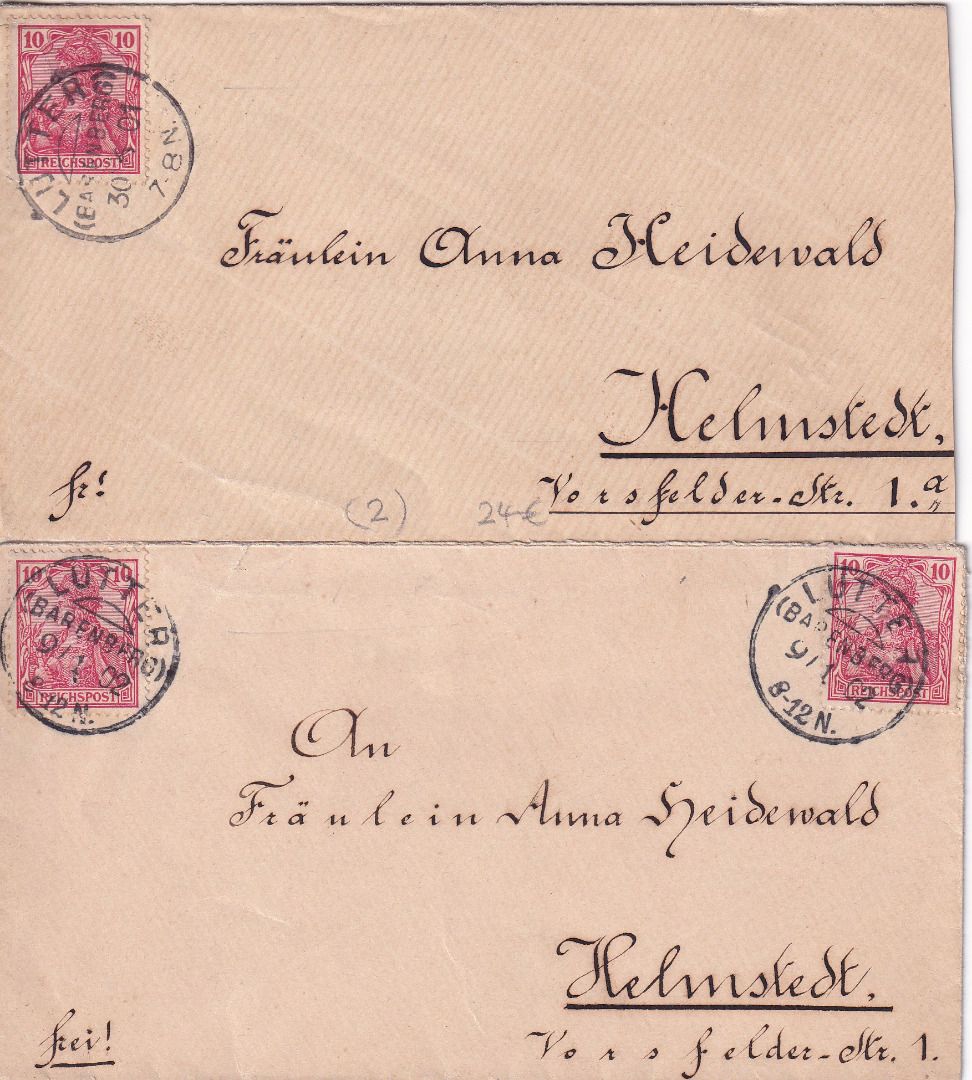 10 10
REICHSPOST
LUTTER
(BARENBERG)
7-8 N
Fräulein Anna Heidewald
Helmstedt,
fr!
Vorsfelder-Str. 1.a
(2) 24€
10 10
REICHSPOST
LUTTER
(BARENBERG)
9/1 02
8-12 N.
10 10
REICHSPOST
LUTTER
(BARENBERG)
9/1 02
8-12 N.
An
Fräulein Anna Heidewald
Helmstedt,
frei!
Vorsfelder-Str. 1.